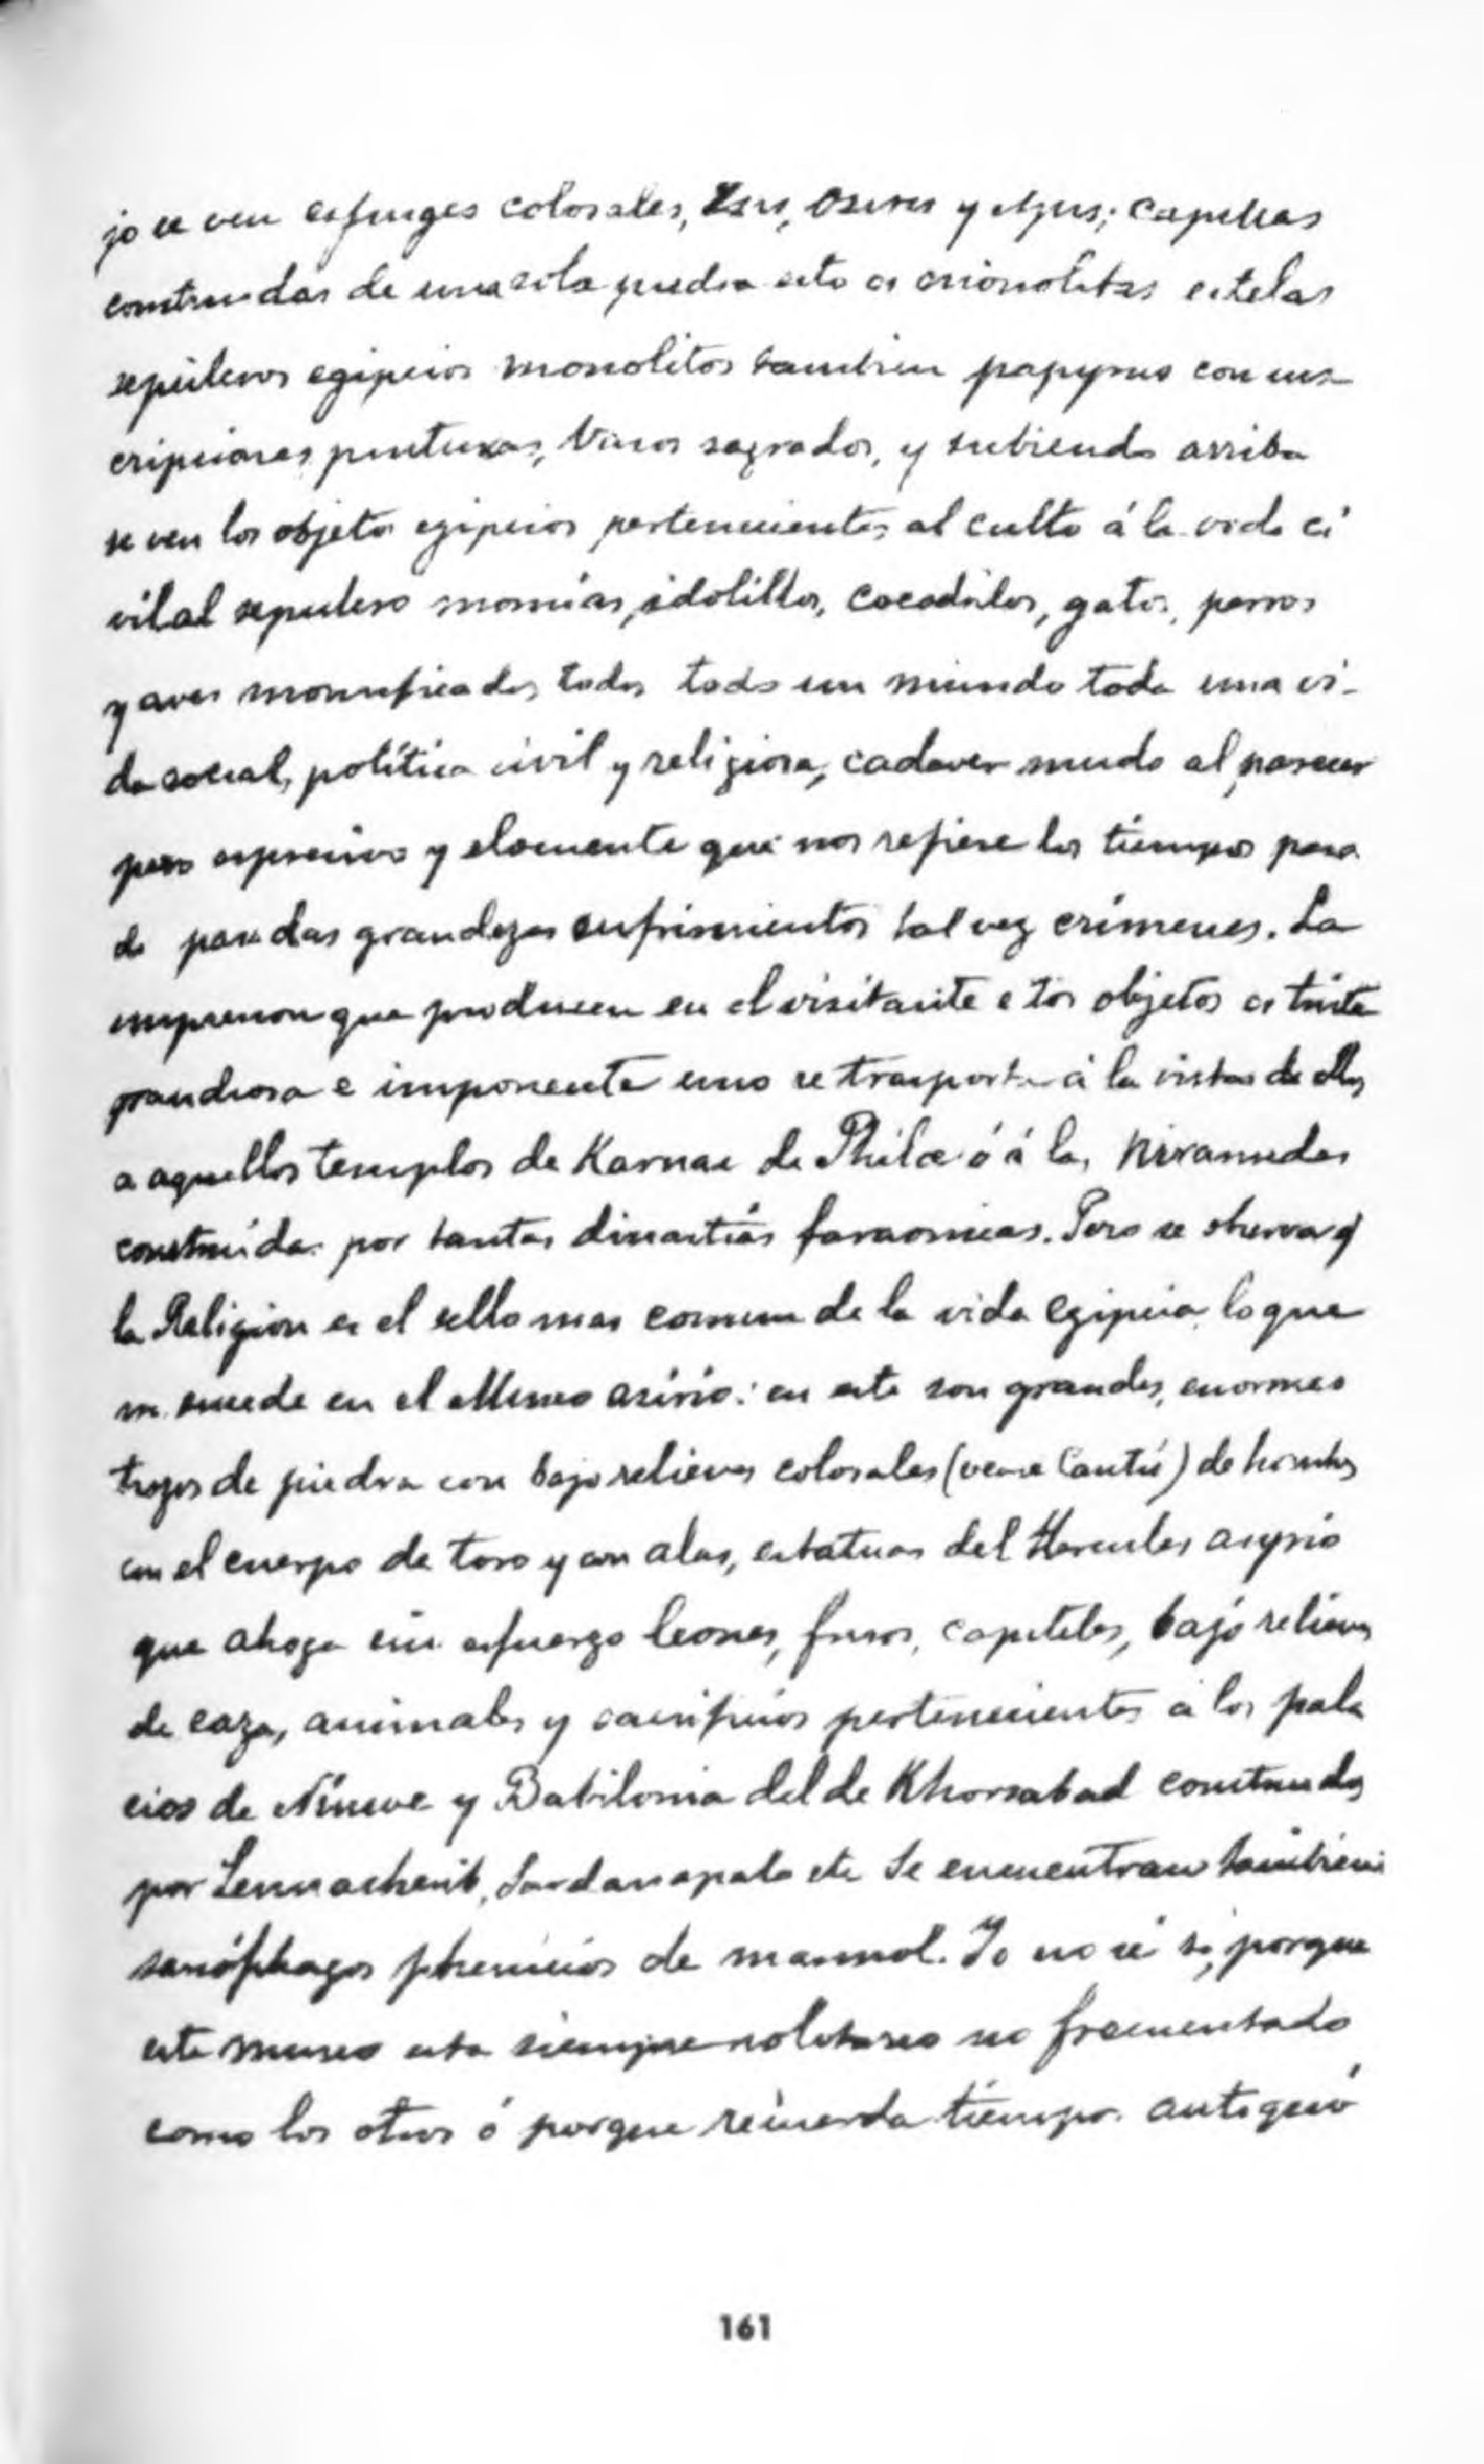 jo se ven esfinges colosales, Isis, Osiris y Apis; capillas
construidas de una sola piedra esto es monolitas estelas
sepulcros egipcios monolitos tambien papyrus con ins-
cripciones, pinturas, Vasos sagrados, y subiendo arriba
se ven los objetos egipcios pertenecientes al culto á la vida ci
vil al sepulcro momias, idolillos, cocodrilos, gatos, perros
y aves momificados todos todo un mundo toda una vi-
da social, política civil y religiosa, cadaver mudo al parecer
pero expresivo y elocuente que nos refiere los tiempos pasa
do pasadas grandezas sufrimientos tal vez crímenes. La
impresion que producen en el visitante estos objetos es triste
grandiosa e imponente uno se trasporta á la vista de ellos
a aquellos templos de Karnac de Philæ ó á las Piramides
construidas por tantas dinastías faraonicas. Pero se observa q
la Religion es el sello mas comun de la vida egipcia, lo que
no sucede en el Museo asirio: en este son grandes, enormes
trozos de piedra con bajo relieves colosales (vease Cantú) de hombres
con el cuerpo de toro y con alas, estatuas del Hercules asyrio
que ahoga sin esfuerzo leones, frisos, capiteles, bajo relieves
de caza, animales y sacrificios pertenecientes a los pala
cios de Nínive y Babilonia del de Khorsabad construidos
por Sennacherib, Sardanapalo etc Se encuentran tambien
sarcófhagos phenicios de marmol. Yo no sé si, porque
este museo esta siempre solitario no frecuentado
como los otros ó porque recuerda tiempos antiguo
161